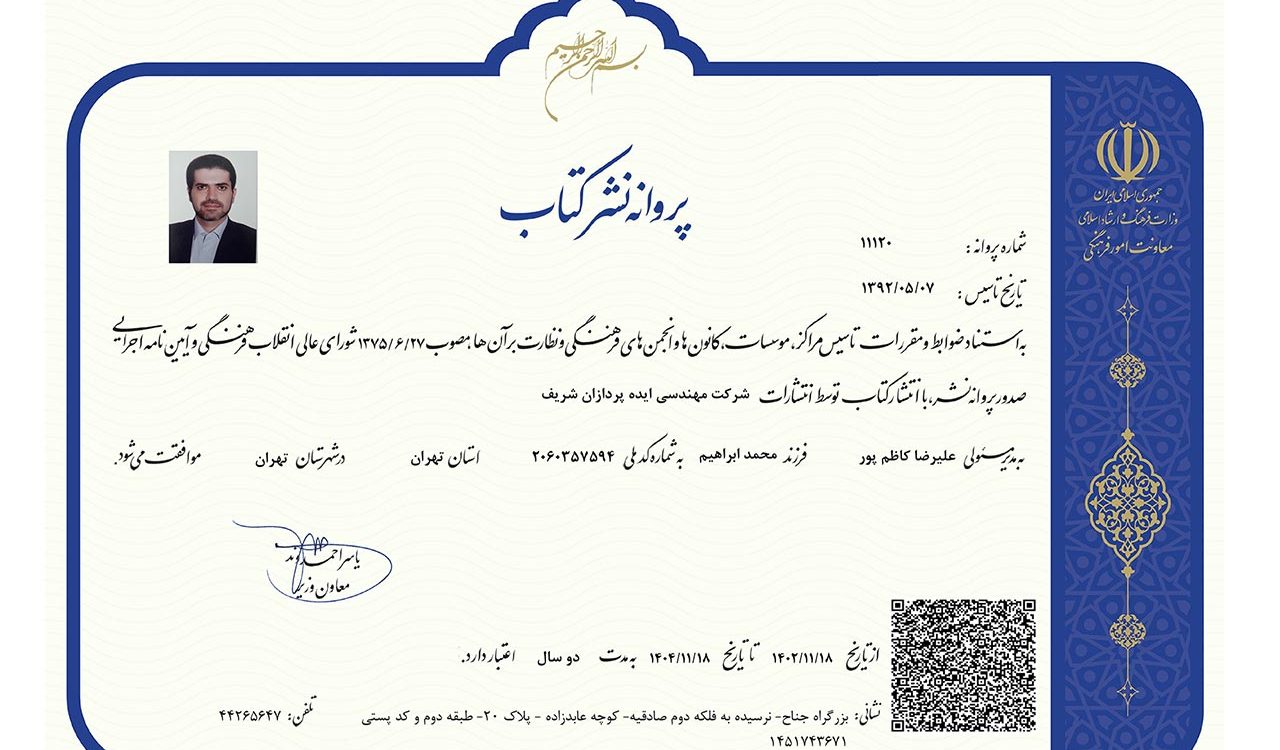 بسم الله الرحمن الرحیم
جمهوری اسلامی ایران
وزارت فرهنگ و ارشاد اسلامی
معاونت امور فرهنگی
پروانه نشر کتاب
شماره پروانه : ۱۱۱۲۰
تاریخ تاسیس : ۱۳۹۲/۰۵/۰۷
به استناد ضوابط و مقررات تاسیس مراکز، موسسات، کانون ها و انجمن های فرهنگی و نظارت بر آن ها، مصوب ۱۳۷۵/۶/۲۷ شورای عالی انقلاب فرهنگی و آیین نامه اجرایی
صدور پروانه نشر، با انتشار کتاب توسط انتشارات شرکت مهندسی ایده پردازان شریف
به مدیر مسئولی علیرضا کاظم پور فرزند محمد ابراهیم به شماره کد ملی ۲۰۶۰۳۵۷۵۹۴ استان تهران در شهرستان تهران موافقت می شود.
یاسر احمدوند
معاون وزیر
از تاریخ ۱۴۰۲/۱۱/۱۸ تا تاریخ ۱۴۰۴/۱۱/۱۸ به مدت دو سال اعتبار دارد.
نشانی: بزرگراه جناح- نرسیده به فلکه دوم صادقیه- کوچه عابدزاده - پلاک ۲۰- طبقه دوم و کد پستی تلفن: ۴۴۲۶۵۶۴۷
۱۴۵۱۷۴۳۶۷۱